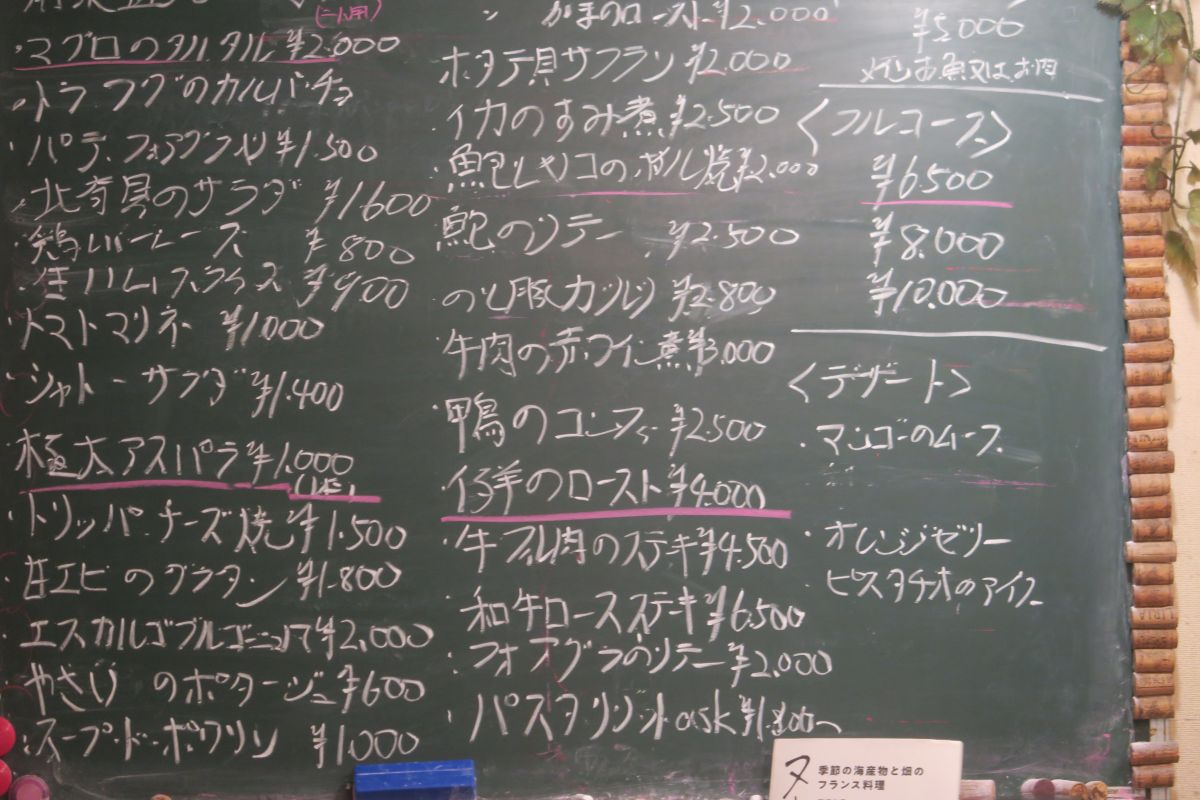 (二人用)
・マグロのタルタル ¥2.000
・トラフグのカルパチョ
・パテ、フォアグラ入り ¥1.500
・北寄貝のサラダ ¥1600
・鶏レバームース ¥800
・生ハムスライス ¥900
・トマトマリネ ¥1000
・シャトーサラダ ¥1.400
・極太アスパラ ¥1.000
(1本)
・トリッパ チーズ焼 ¥1.500
・甘エビのグラタン ¥1.800
・エスカルゴブルゴーニュ ¥2,000
・やさいのポタージュ ¥600
・スープ・ド・ポワソン ¥1.000
かまのロースト ¥2.000
・ホタテ貝サフラン ¥2.000
・イカのすみ煮 ¥2.500
・鮑とキノコのブル焼 ¥2.000
・鮑のソテー ¥2.500
・豚カツレツ ¥2.800
・牛肉の赤ワイン煮 ¥3.000
・鴨のコンフィ ¥2.500
・仔羊のロースト ¥4.000
・牛フィレ肉のステキ ¥4.500
・和牛ロースステキ ¥6.500
・フォアグラのソテー ¥2,000
・パスタ リゾット ask ¥1.800〜
¥5.000
メインお魚又はお肉
〈フルコース〉
¥6.500
¥8.000
¥10.000
〈デザート〉
・マンゴーのムース
・オレンジゼリー
・ピスタチオのアイス
季節の海産物と畑の
フランス料理